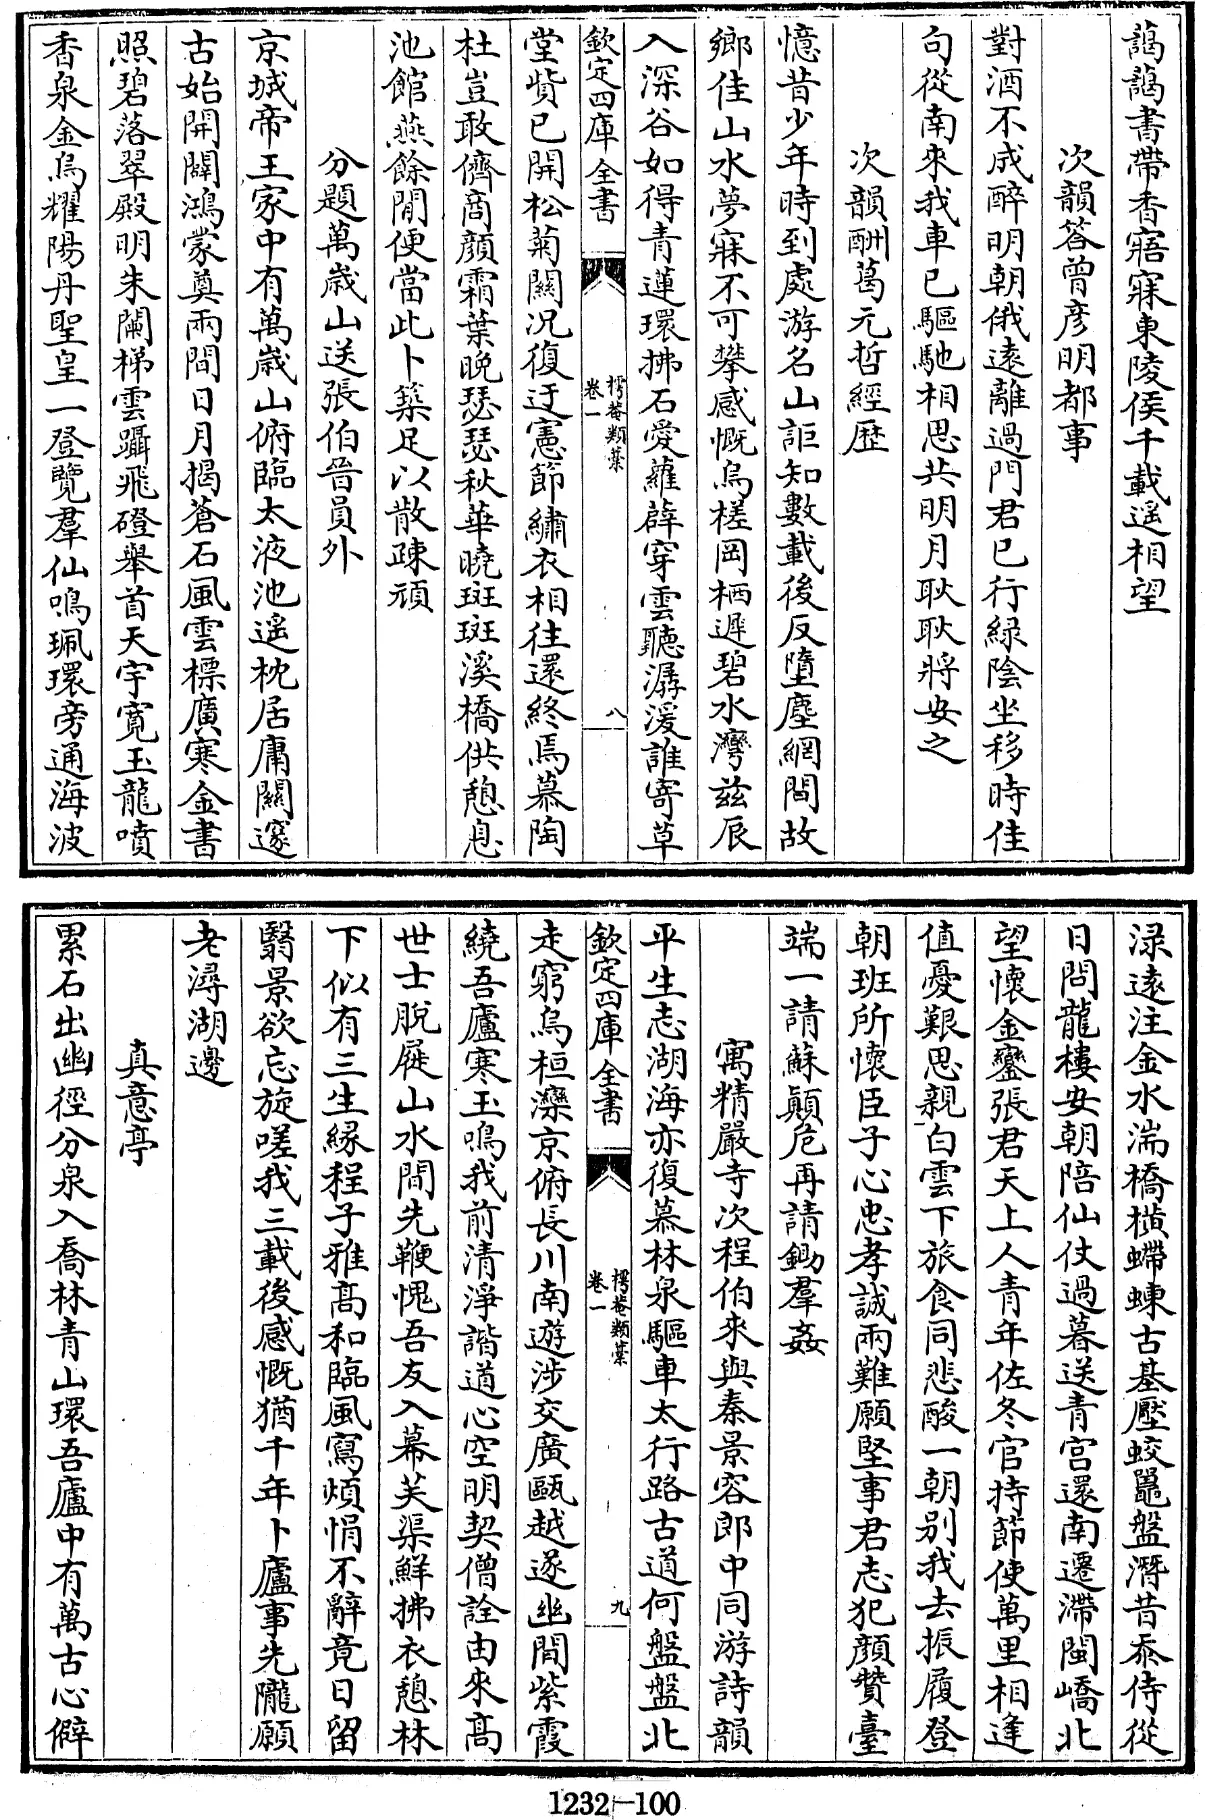 藹藹書帶香寤寐東陵侯千載遥相望
次韻答曾彦明都事
對酒不成醉明朝俄遠離過門君已行緑陰坐移時佳
句從南來我車已驅馳相思共明月耿耿將安之
次韻酬葛元哲經歴
憶昔少年時到處游名山詎知數載後反墮塵網間故
鄉佳山水夢寐不可攀感慨烏槎岡栖遲碧水灣兹辰
入深谷如得青蓮環拂石愛蘿薜穿雲聽潺湲誰寄草
欽定四庫全書
樗菴類藁
卷一
八
堂貲已開松菊關况復迂憲節繡衣相往還終焉慕陶
杜豈敢儕商顔霜葉晩瑟瑟秋華曉斑斑溪橋供憩息
池館燕餘閒便當此卜築足以散疎頑
分題萬歲山送張伯晉員外
京城帝王家中有萬歲山俯臨太液池遥枕居庸關邃
古始開闢鴻蒙奠兩間日月揭蒼石風雲標廣寒金書
照碧落翠殿明朱闌梯雲躡飛磴舉首天宇寛玉龍噴
香泉金烏耀陽丹聖皇一登覽羣仙鳴珮環旁通海波
渌遠注金水湍橋横螮蝀古基壓蛟鼉盤潛昔忝侍從
日問龍樓安朝陪仙仗過暮送青宫還南遷滯閩嶠北
望懷金鑾張君天上人青年佐冬官持節使萬里相逢
值憂艱思親白雲下旅食同悲酸一朝别我去振履登
朝班所懷臣子心忠孝誠兩難願堅事君志犯顔贊臺
端一請蘇顛危再請鋤羣姦
寓精嚴寺次程伯來與秦景容郎中同游詩韻
平生志湖海亦復慕林泉驅車太行路古道何盤盤北
欽定四庫全書
樗菴類藁
卷一
九
走窮烏桓灤京俯長川南遊涉交廣甌越遂幽間紫霞
繞吾廬寒玉鳴我前清淨諧道心空明契僧詮由來髙
世士脱屣山水間先鞭愧吾友入幕芙渠鮮拂衣憩林
下似有三生縁程子雅髙和臨風寫煩悁不辭竟日留
翳景欲忘旋嗟我三載後感慨猶千年卜廬事先隴願
老潯湖邊
真意亭
累石出幽徑分泉入喬林青山環吾廬中有萬古心僻
1232-100